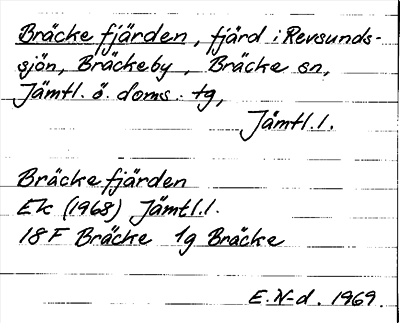 Bräckefjärden, fjärd i Revsunds-
sjön, Bräckeby, Bräcke sn,
Jämtl. ö. doms. tg,
Jämtl.l.
Bräckefjärden
Ek (1968) Jämtl.l.
18F Bräcke 1g Bräcke
E.N-d. 1969.